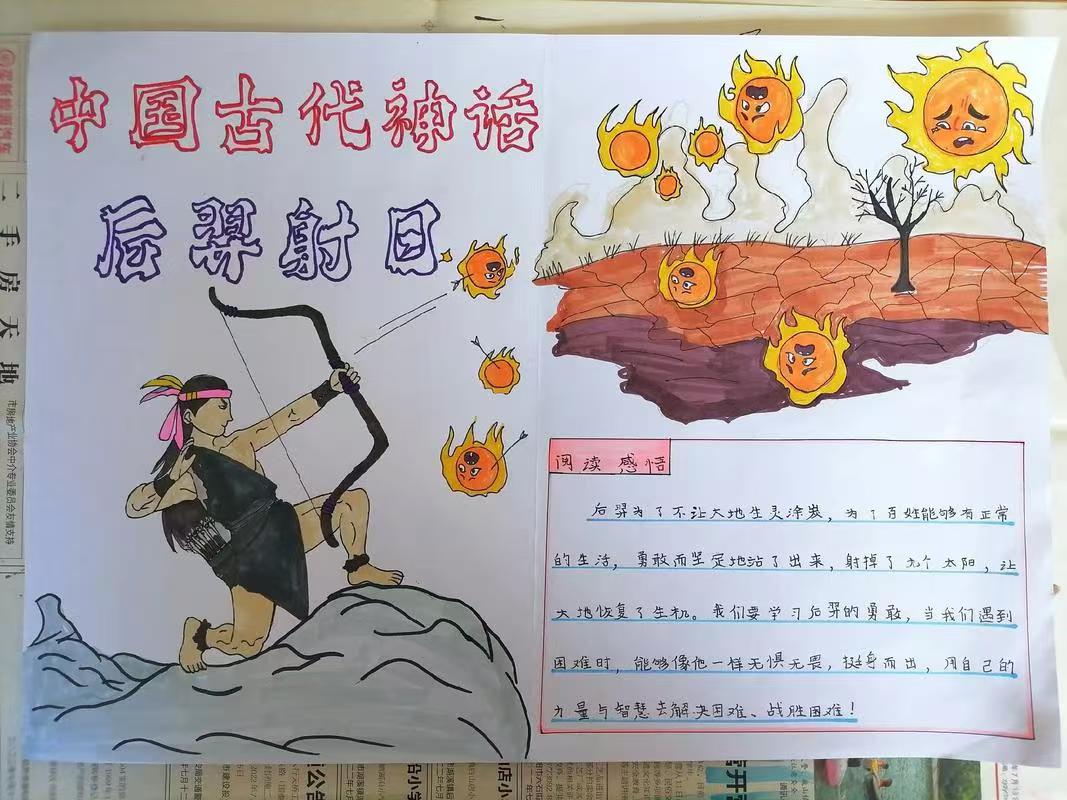 中国古代神话
后羿射日
阅读感悟
后羿为了不让大地生灵涂炭，为了百姓能够有正常
的生活，勇敢而坚定地站了出来，射掉了九个太阳，让
大地恢复了生机。我们要学习后羿的勇敢，当我们遇到
困难时，能够像他一样无惧无畏，挺身而出，用自己的
力量与智慧去解决困难、战胜困难！
二手房天地
市房地产业协会中介专业委员会友情支持